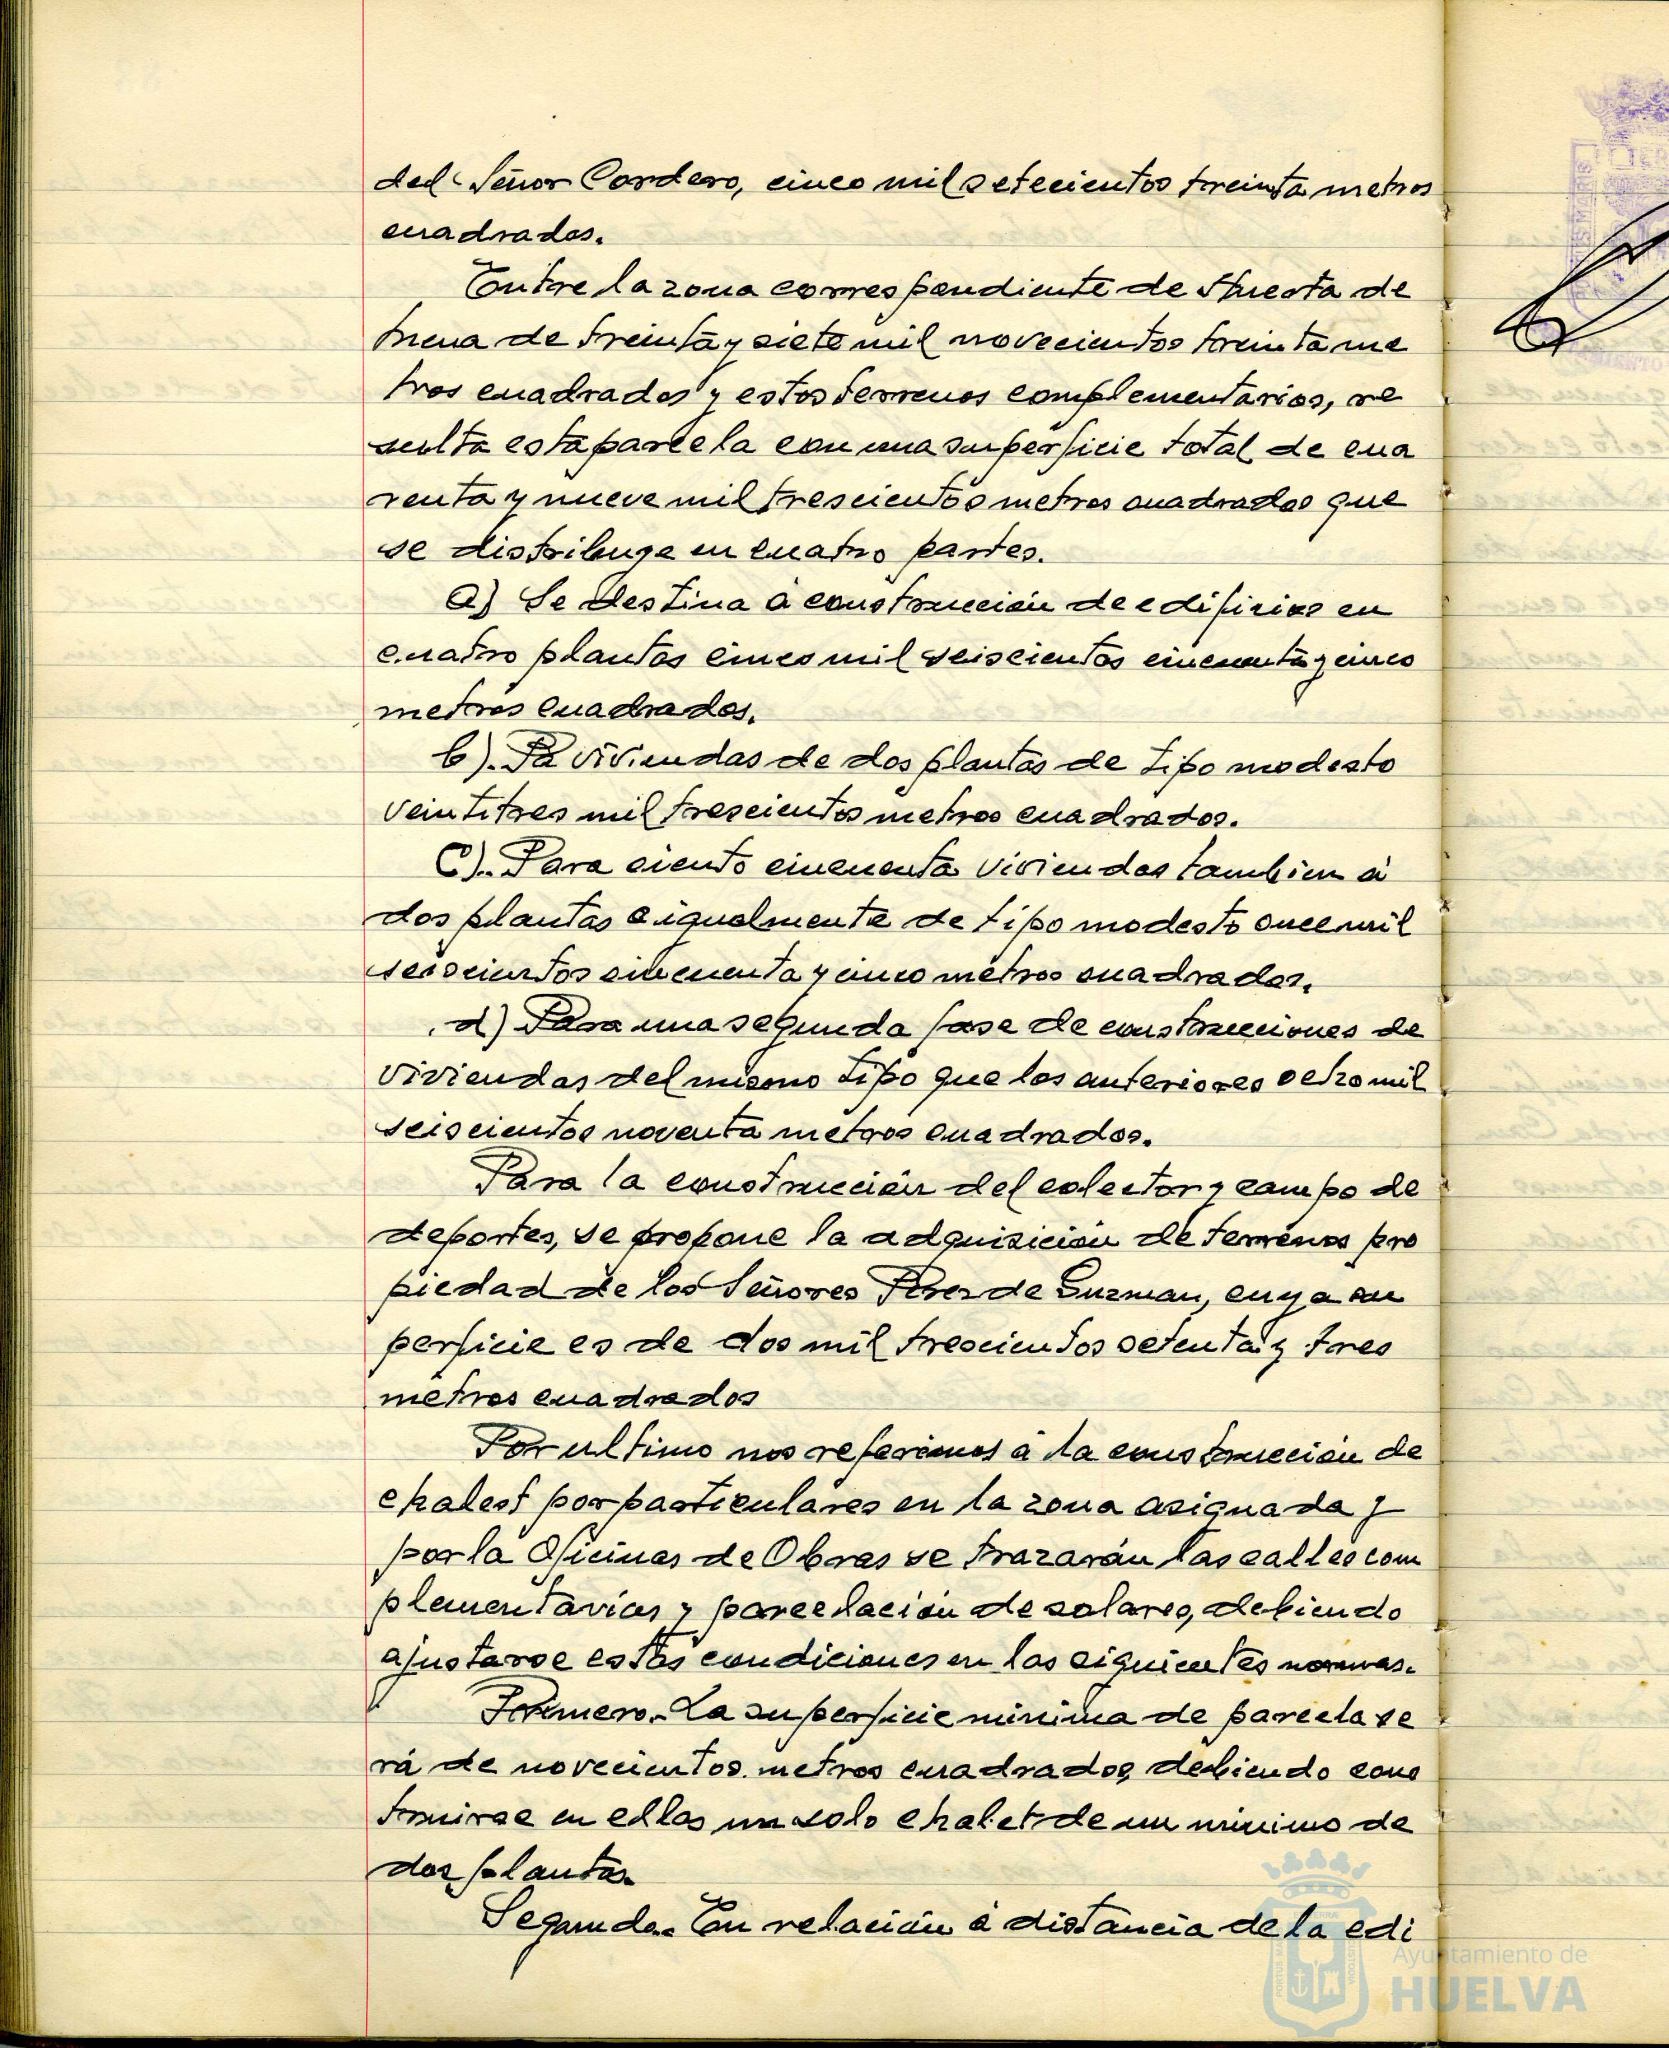 del Señor Cordero, cinco mil setecientos treinta metros
cuadrados.
Entre la zona correspondiente de Huerta de
Mena de treinta y siete mil novecientos treinta me
tros cuadrados y estos terrenos complementarios, re
sulta esta parcela con una superficie total de cua
renta y nueve mil trescientos metros cuadrados que
se distribuye en cuatro partes.
a) Se destina á construcción de edificios en
cuatro plantas cinco mil seiscientos cincuenta y cinco
metros cuadrados.
b). Pa viviendas de dos plantas de tipo modesto
veintitres mil trescientos metros cuadrados.
C).. Para ciento cincuenta viviendas tambien á
dos plantas e igualmente de tipo modesto once mil
seiscientos cincuenta y cinco metros cuadrados.
d) Para una segunda fase de construcciones de
viviendas del mismo tipo que los anteriores ocho mil
seiscientos noventa metros cuadrados.
Para la construcción del colector y campo de
deportes, se propone la adquisición de terrenos pro
piedad de los Señores Perez de Guzman, cuya su
perficie es de dos mil trescientos setenta y tres
metros cuadrados
Por ultimo nos referimos á la construcción de
chalest por particulares en la zona asignada y
por la Oficinas de Obras se trazarán las calles com
plementarias y parcelación de solares, debiendo
ajustarse estas condiciones en las siguientes normas.
Primero.- La superficie minima de parcela se
rá de novecientos metros cuadrados debiendo cons
truirse en ellos un solo chalet de un minimo de
dos plantas.
Segundo.- En relación á distancia de la edi
Ayuntamiento de
HUELVA